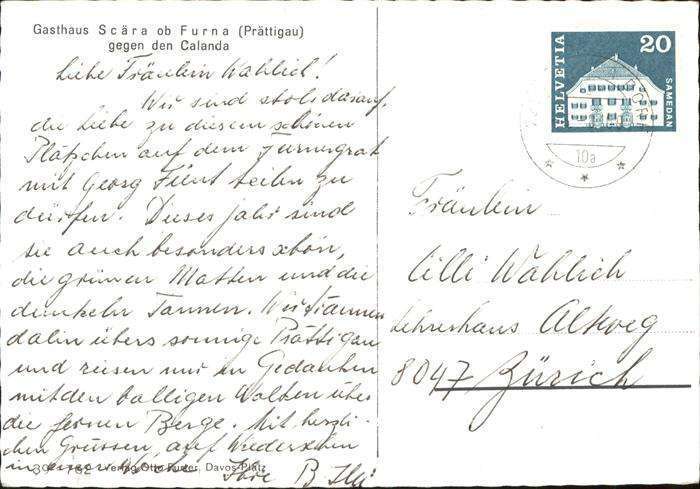 Gasthaus Scära ob Furna (Prättigau)
gegen den Calanda
Liebe Fräulein Wahlich!
Wir sind stolz darauf,
die Liebe zu diesem schönen
Plätzchen auf dem Furnergrat
mit Georg Flint teilen zu
dürfen. Dieses Jahr sind
sie auch besonders schön,
die grünen Matten und die
dunkeln Tannen. Wir träumen
dahin übers sonnige Prättigau
und reisen nur in Gedanken
mit den balligen Wolken über
die fernen Berge. Mit herzli-
chen Grüssen, auf Wiedersehen
in einer Woche
Ihre B
Verlag Otto Furter, Davos-Platz
HELVETIA
20
SAMEDAN
10a
Fräulein
Cilli Wahlich
Lehrerhaus Altweg
8047 Zürich